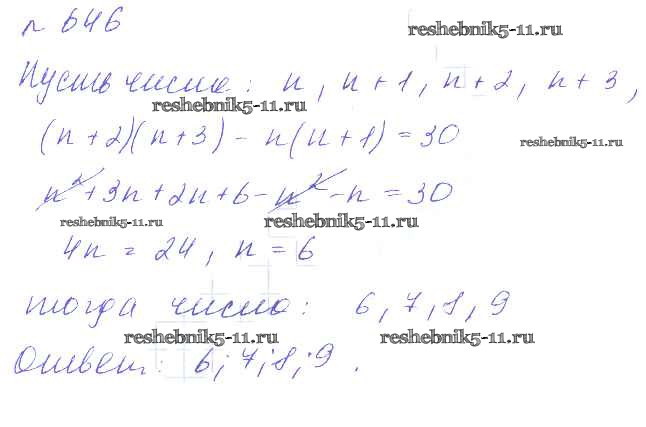 № 646
reshebnik5-11.ru
Пусть числа: n, n+1, n+2, n+3,
reshebnik5-11.ru
(n+2)(n+3) - n(n+1) = 30
reshebnik5-11.ru
n² + 3n + 2n + 6 - n² - n = 30
reshebnik5-11.ru
reshebnik5-11.ru
4n = 24, n = 6
тогда числа: 6, 7, 8, 9
reshebnik5-11.ru
reshebnik5-11.ru
Ответ: 6; 7; 8; 9.